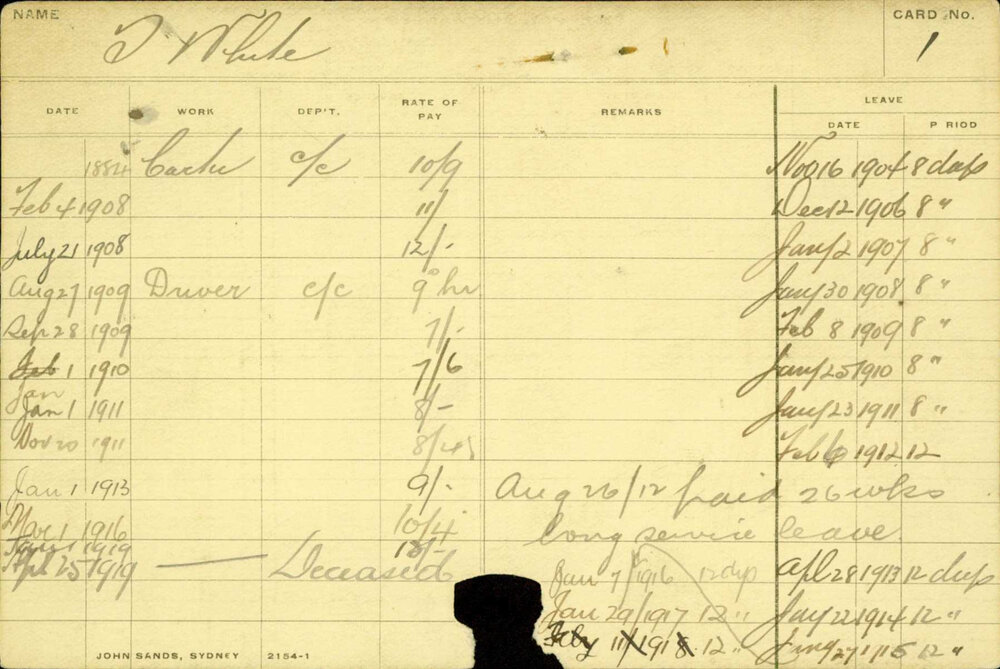 NAME
CARD No.
J White
1
DATE WORK DEP'T. RATE OF PAY REMARKS LEAVE
DATE P RIOD
1884 Carter c/c 10/9 Nov 16 1904 8 days
Feb 4 1908 11/ Dec 12 1906 8 "
July 21 1908 12/- Jany 2 1907 8 "
Aug 27 1909 Driver c/c 9 hr Jany 30 1908 8 "
Sep 28 1909 7/- Feb 8 1909 8 "
Feb 1 1910 7/6 Jany 25 1910 8 "
Jan
Jan 1 1911 8/- Jany 23 1911 8 "
Nov 20 1911 8/4½ Feb 6 1912 12
Jan 1 1913 9/- Aug 26/12 paid 26 wks
Mar 1 1916 10/4 long service leave
Jany 1 1919 12/-
Apl 25 1919 — Deceased Jan 7/1916 12 dys Apl 28 1913 12 days
Jan 29/1917 12 " Jany 22 1914 12 "
Feby 11/1918 12 " Jany 27 1915 12 "
JOHN SANDS, SYDNEY 2154-1